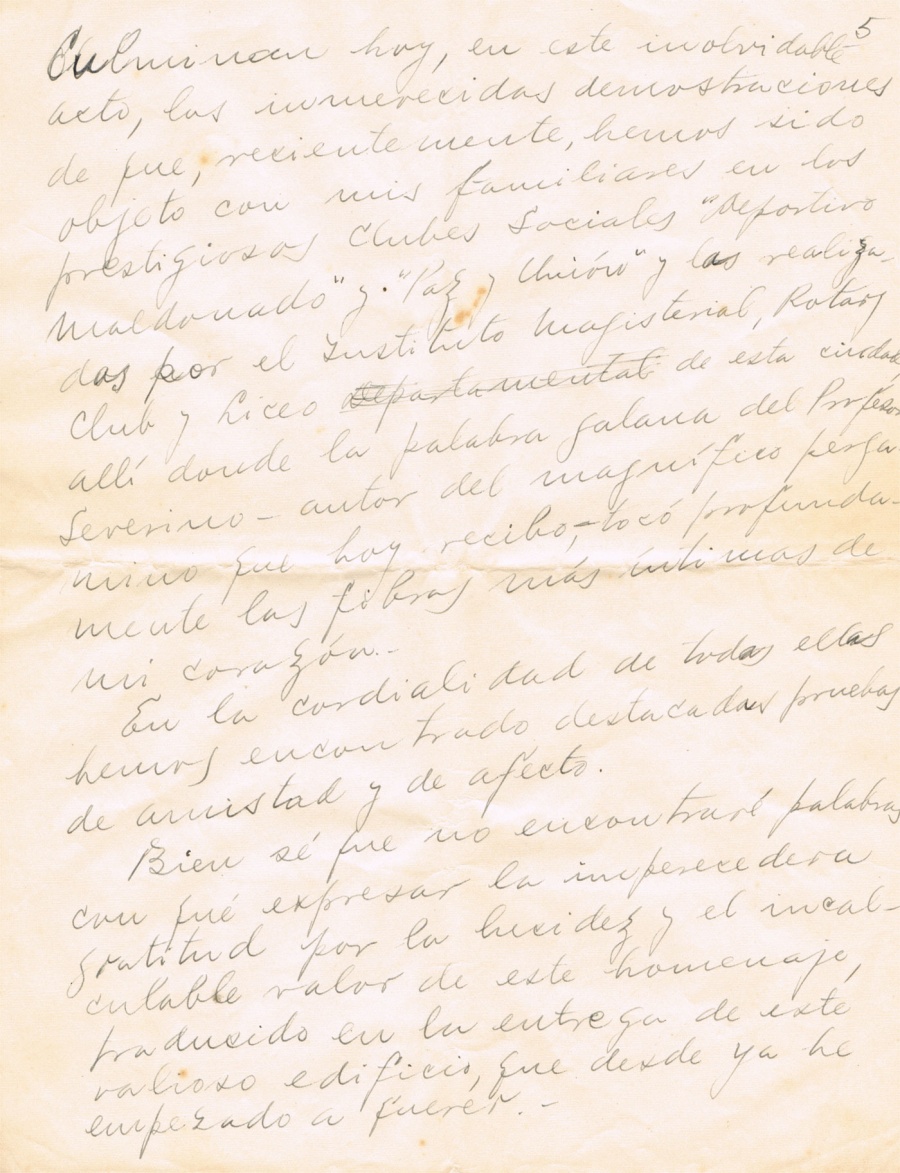 5
Culminan hoy, en este inolvidable
acto, las inmerecidas demostraciones
de que, recientemente, hemos sido
objeto con mis familiares en los
prestigiosos Clubes Sociales "Deportivo
Maldonado" y "Paz y Unión" y las realiza-
das por el Instituto Magisterial, Rotary
Club y Liceo Departamental de esta ciudad,
allí donde la palabra galana del Profesor
Severino - autor del magnífico perga-
mino que hoy recibo, - tocó profunda-
mente las fibras más íntimas de
mi corazón.-
En la cordialidad de todas ellas
hemos encontrado destacadas pruebas
de amistad y de afecto.
Bien sé que no encontraré palabras
con qué expresar la imperecedera
gratitud por la lucidez y el incal-
culable valor de este homenaje,
traducido en la entrega de este
valioso edificio, que desde ya he
empezado a querer.-